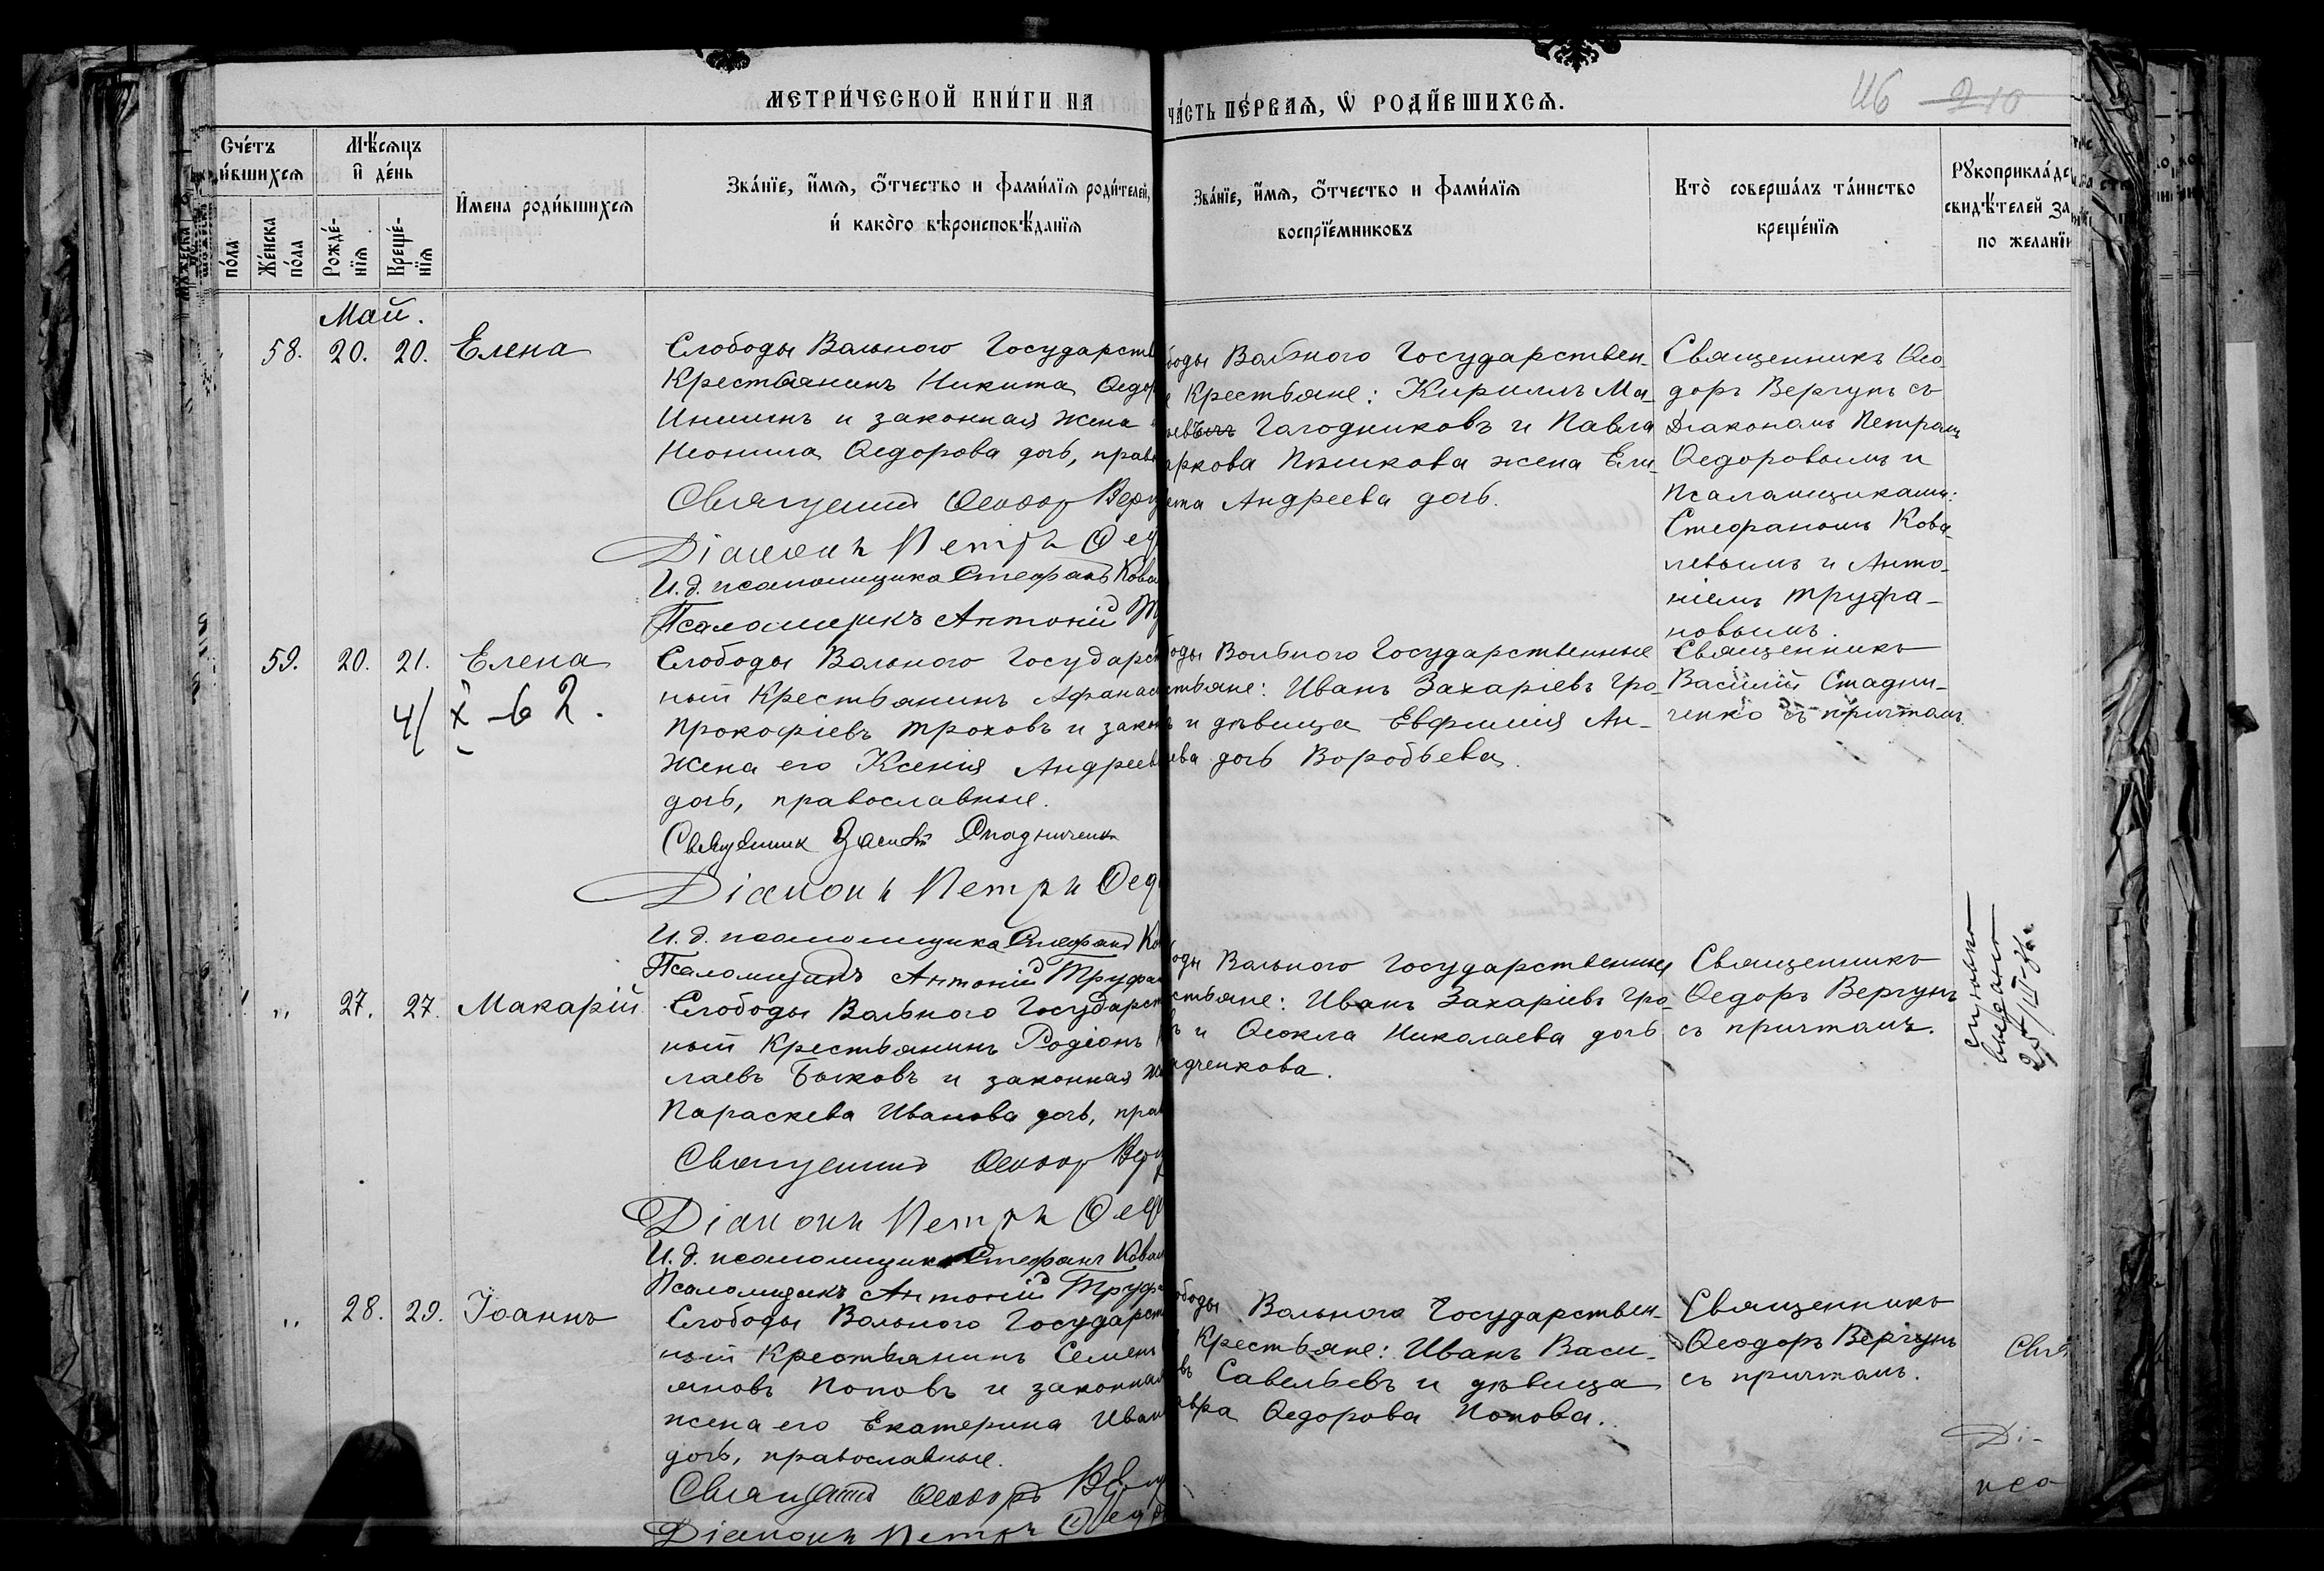 МЕТРИ́ЧЕСКОЙ КНИ́ГИ НА
ЧА́СТЬ ПЕ́РВАЯ, Ѡ҆ РОДИ́ВШИХСЯ.
46 210
Сче́тъ
и́вшихся
Мѣ́сяцъ
и҆ де́нь
И҆мена роди́вшихся
Зва́нїе, и҆́мя, ѻ҆́тчество и фами́лїя роди́телей,
и҆ како́го вѣроисповѣ́данїя
Зва́нїе, и҆́мя, ѻ҆́тчество и фами́лїя
воспрїе́мниковъ
Кто̀ соверша́лъ та́инство
креще́нїя
Рꙋкоприкла́дс
свидѣ́телей за
по жела́нїю
по́ла
Же́нска
по́ла
Рожде́-
нїя
Креще́-
нїя
Май.
58. 20. 20. Елена
Слободы Вольного Государстве
Крестьянинъ Никита Ѳедор
Инишинъ и законная жена
Неонила Ѳедорова дочь, прав
Священникъ Ѳеодоръ Верг
Діаконъ Петръ Ѳед
И. д. псаломщика Стефанъ Кова
Псаломщикъ Антоній Т
боды Вольного Государствен-
е Крестьяне: Кириллъ Ма-
Гагодниковъ и Павла
аркова Пѣшкова жена Ели-
вета Андреева дочь.
Священникъ Ѳео-
доръ Вергунъ съ
Діакономъ Петромъ
Ѳедоровымъ и
Псаломщиками:
Стефаномъ Кова-
левымъ и Анто-
ніемъ Труфа-
новымъ.
59. 20. 21. Елена
Слободы Вольного Государст
ный Крестьянинъ Афанас
Прокофіевъ Троховъ и закон
жена его Ксенія Андреев
дочь, православные.
Священник Василій Стадниченко
Діаконъ Петръ Ѳед
И. д. псаломщика Стефанъ Ко
Псаломщикъ Антоній Труфа
оды Вольного Государственные
стьяне: Иванъ Захаріевъ Гро-
ъ и дѣвица Евфимія Ан-
еева дочь Воробьева.
Священникъ
Василій Стадни-
ченко съ причтомъ.
4/X-62.
„ 27. 27. Макарій
Слободы Вольного Государст
ный Крестьянинъ Родіонъ
лаевъ Быковъ и законная же
Параскева Иванова дочь, прав
Священникъ Ѳеодоръ Верг
Діаконъ Петръ Ѳед
И. д. псаломщика Стефанъ Ковал
Псаломщикъ Антоній Труфа
оды Вольного Государственные
стьяне: Иванъ Захаріевъ Гро-
ъ и Ѳекла Николаева дочь
адченкова.
Священникъ
Ѳедоръ Вергунъ
съ причтомъ.
выдано
„ 28. 29. Іоаннъ
Слободы Вольного Государст
ный Крестьянинъ Семенъ
яновъ Поповъ и законная
жена его Екатерина Иван
дочь, православные.
Священникъ Ѳеодоръ Верг
Діаконъ Петръ Ѳедо
ободы Вольного Государствен-
Крестьяне: Иванъ Васи-
въ Савельевъ и дѣвица
авра Ѳедорова Попова.
Священникъ
Ѳеодоръ Вергунъ
съ причтомъ.
Свя
Ді-
пса